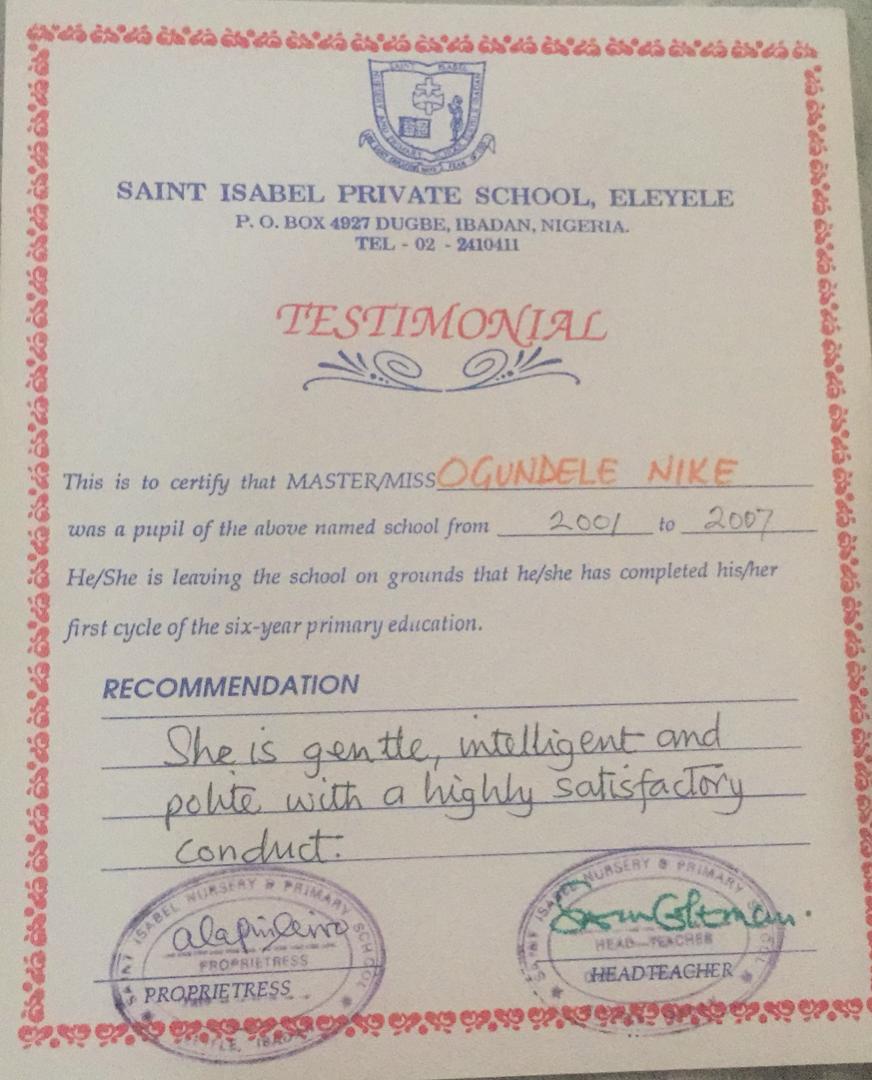 SAINT ISABEL
SAINT ISABEL PRIVATE SCHOOL, ELEYELE
P. O. BOX 4927 DUGBE, IBADAN, NIGERIA.
TEL - 02 - 2410411
TESTIMONIAL
This is to certify that MASTER/MISS OGUNDELE NIKE
was a pupil of the above named school from 2001 to 2007
He/She is leaving the school on grounds that he/she has completed his/her
first cycle of the six-year primary education.
RECOMMENDATION
She is gentle, intelligent and
polite with a highly satisfactory
conduct.
SAINT ISABEL NURSERY & PRIMARY SCHOOL
PROPRIETRESS
PROPRIETRESS
SAINT ISABEL NURSERY & PRIMARY SCHOOL
HEAD-TEACHER
HEADTEACHER